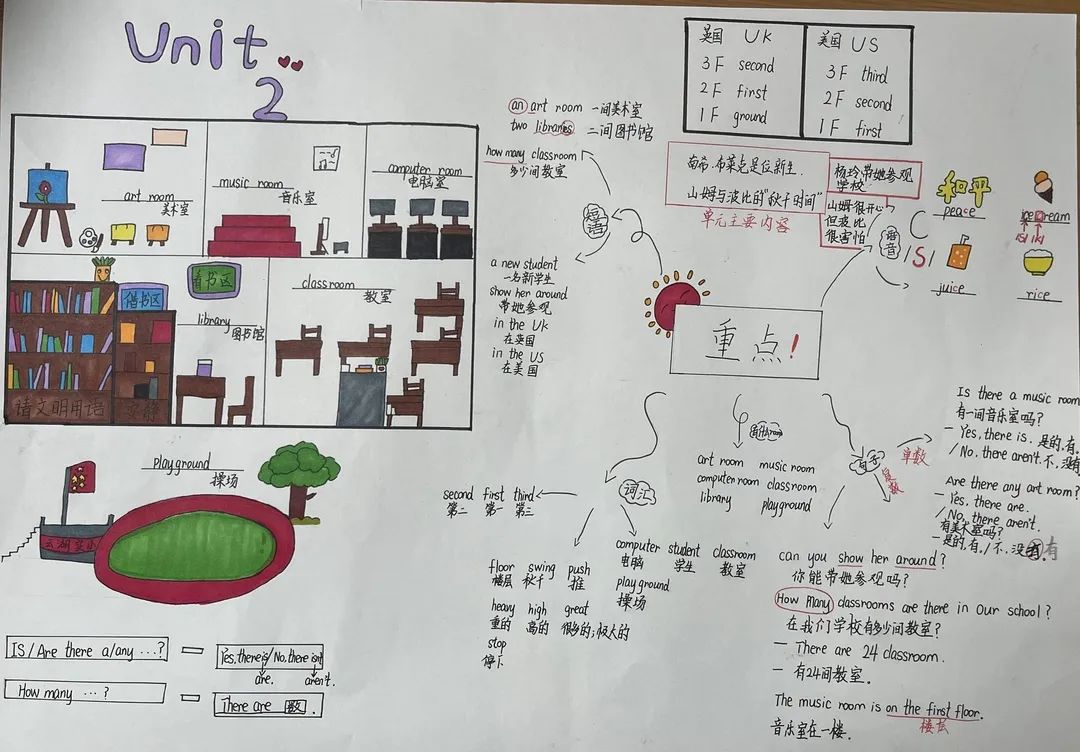 Unit
2
英国 UK
3F second
2F first
1F ground
美国 US
3F third
2F second
1F first
an art room 一间美术室
two libraries 二间图书馆
how many classroom
多少间教室
短语
a new student
一名新学生
show her around
带她参观
in the UK
在英国
in the US
在美国
南希·布莱克是位新生.
山姆与波比的"秋千时间"
单元主要内容
杨玲带她参观
学校
山姆很开心
但波比
很害怕
语音
C
/S/
和平
peace
ice cream
/s/ /k/
juice
rice
重点!
art room
美术室
music room
音乐室
computer room
电脑室
借书区
看书区
library
图书馆
classroom
教室
请文明用语
安静
playground
操场
IS/Are there a/any ...?
Yes, there is/No, there isn't
are. aren't.
How many ...?
There are 数.
词汇
second first third
第二 第一 第三
floor swing push
楼层 秋千 推
heavy high great
重的 高的 很多的;极大的
stop
停下
computer student classroom
电脑 学生 教室
playground
操场
art room music room
computer room classroom
library playground
句子
单数
复数
Is there a music room
有一间音乐室吗?
— Yes, there is. 是的,有.
/ No, there aren't. 不,没有
Are there any art room?
— Yes, there are.
/ No, there aren't.
有美术室吗?
— 是的,有./不,没有.有
can you show her around?
你能带她参观吗?
How many classrooms are there in our school?
在我们学校有多少间教室?
— There are 24 classroom.
— 有24间教室.
The music room is on the first floor.
楼层
音乐室在一楼.